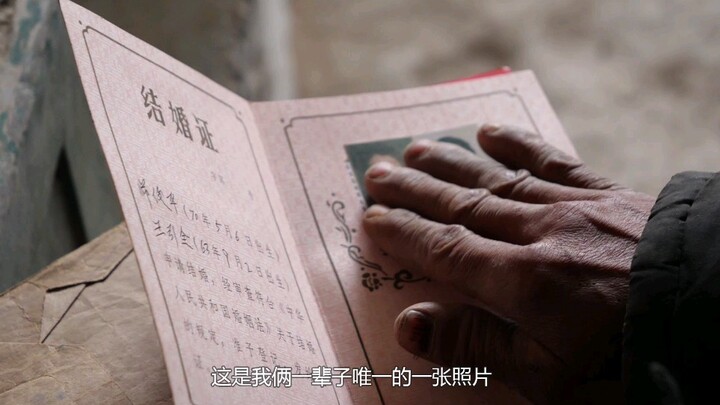 结婚证
字第 号
俊英(70年5月6日出生)
兰孙金(63年9月2日出生)
申请结婚,经审查符合《中华
人民共和国婚姻法》关于结婚
的规定,准予登记,发给此
证
这是我俩一辈子唯一的一张照片